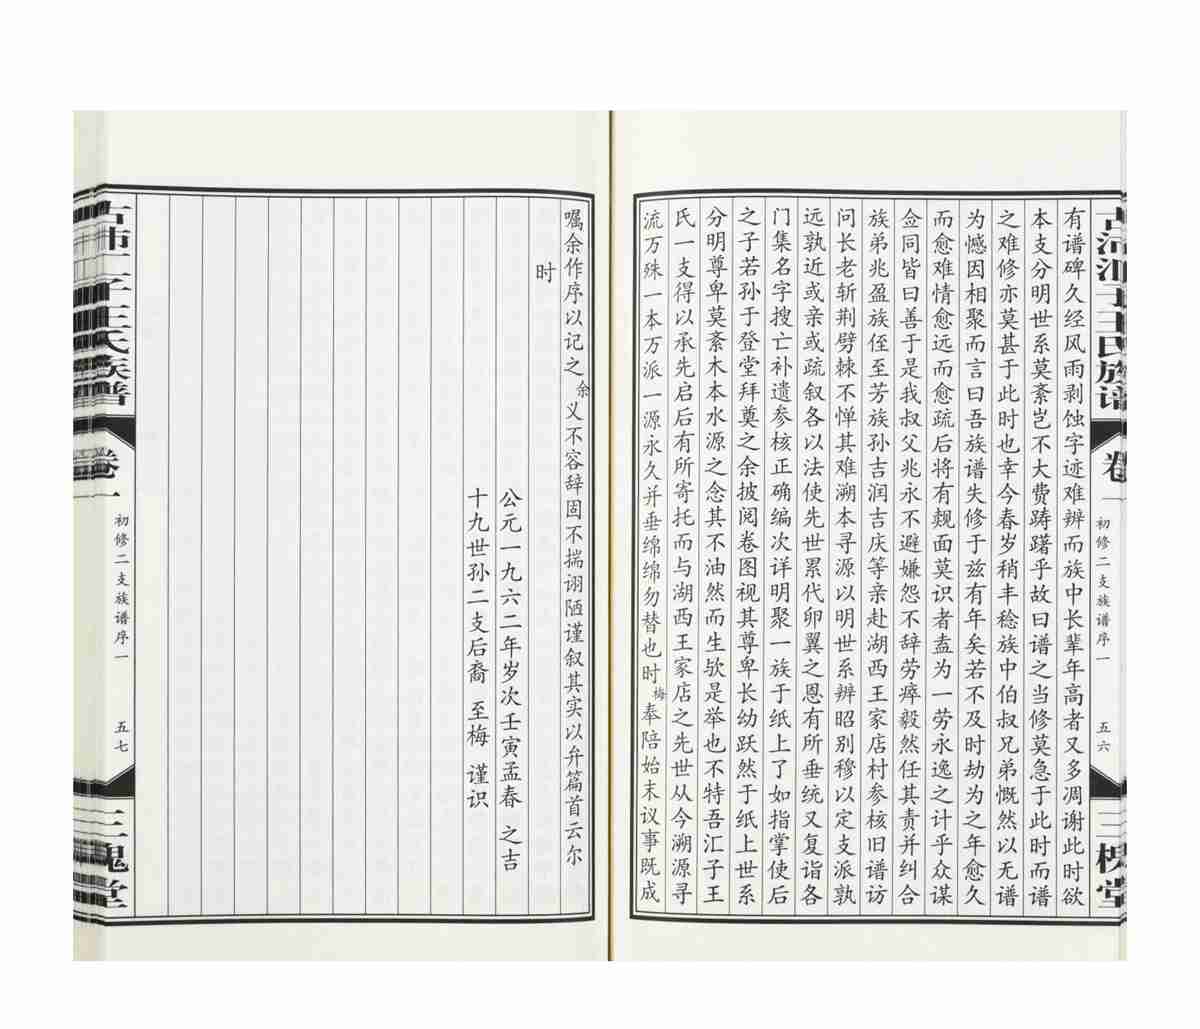 有谱碑久经风雨剥蚀字迹难辨而族中长辈年高者又多凋谢此时欲
本支分明世系莫紊岂不大费踌躇乎故曰谱之当修莫急于此时而谱
之难修亦莫甚于此时也幸今春岁稍丰稔族中伯叔兄弟慨然以无谱
为憾因相聚而言曰吾族谱失修于兹有年矣若不及时劫为之年愈久
而愈难情愈远而愈疏后将有觌面莫识者盍为一劳永逸之计乎众谋
佥同皆曰善于是我叔父兆永不避嫌怨不辞劳瘁毅然任其责并纠合
族弟兆盈族侄至芳族孙吉润吉庆等亲赴湖西王家店村参核旧谱访
问长老斩荆劈棘不惮其难溯本寻源以明世系辨昭别穆以定支派孰
远孰近或亲或疏叙各以法使先世累代卵翼之恩有所垂统又复诣各
门集名字搜亡补遗参核正确编次详明聚一族于纸上了如指掌使后
之子若孙于登堂拜奠之余披阅卷图视其尊卑长幼跃然于纸上世系
分明尊卑莫紊木本水源之念其不油然而生欤是举也不特吾汇子王
氏一支得以承先启后有所寄托而与湖西王家店之先世从今溯源寻
流万殊一本万派一源永久并垂绵绵勿替也时梅奉陪始末议事既成
三槐堂
卷一
初修二支族谱序一
五六
嘱余作序以记之余义不容辞固不揣诩陋谨叙其实以弁篇首云尔
时
公元一九六二年岁次壬寅孟春 之吉
十九世孙二支后裔 至梅 谨识
王氏族谱
卷一
初修二支族谱序一
五七
三槐堂